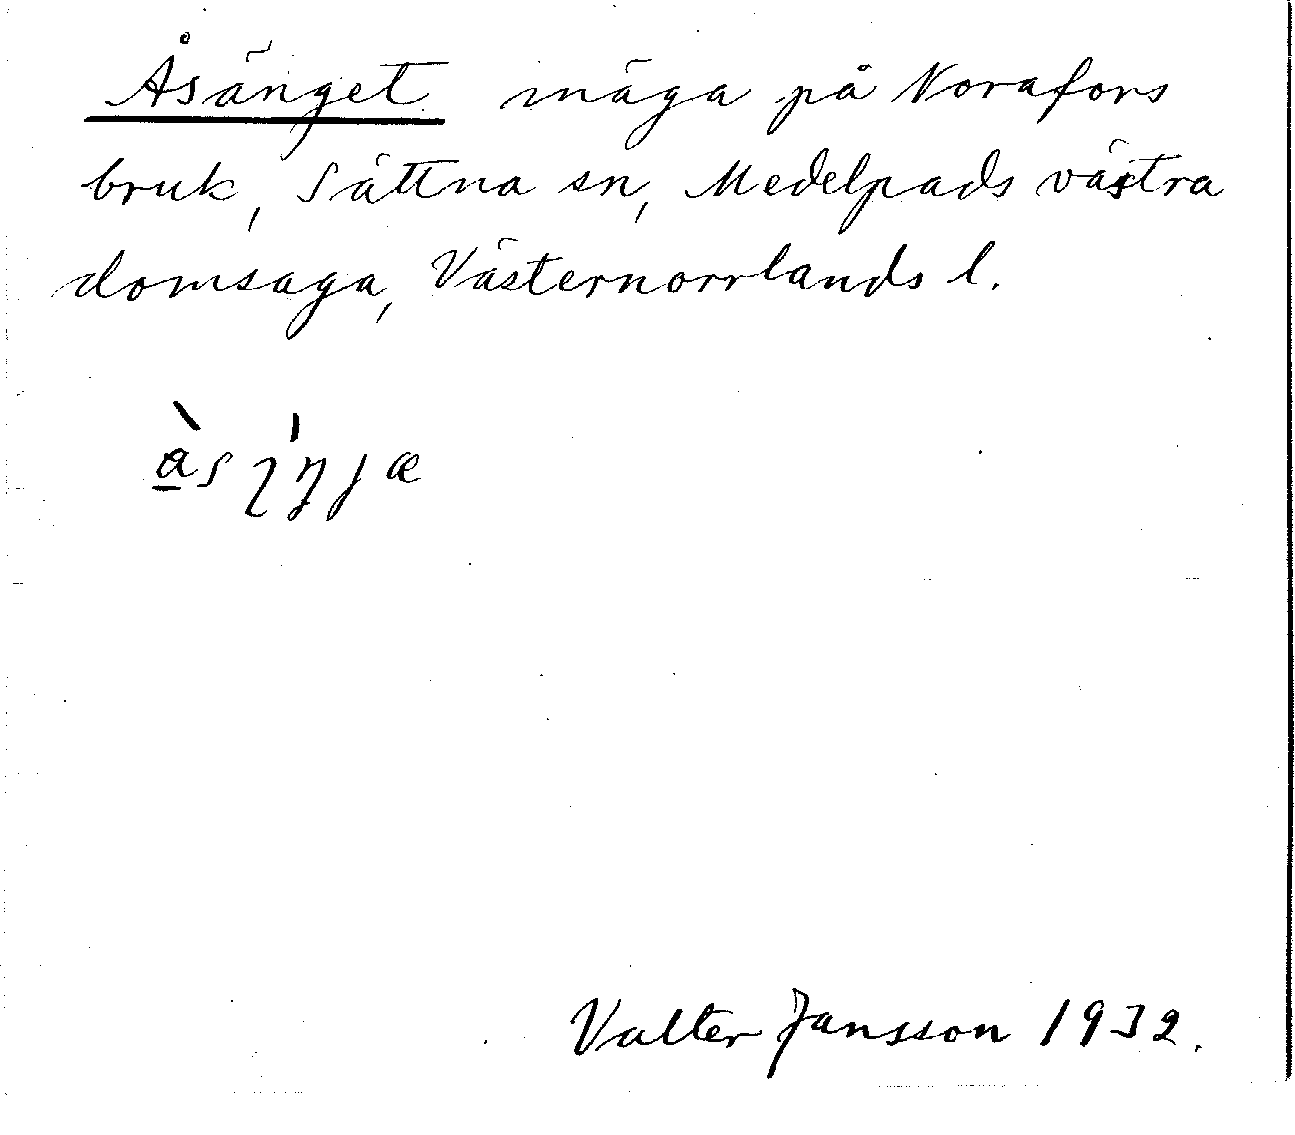 Åsänget mäga på Norafors
bruk, Sättna sn, Medelpads västra
domsaga, Västernorrlands l.
Valter Jansson 1932.